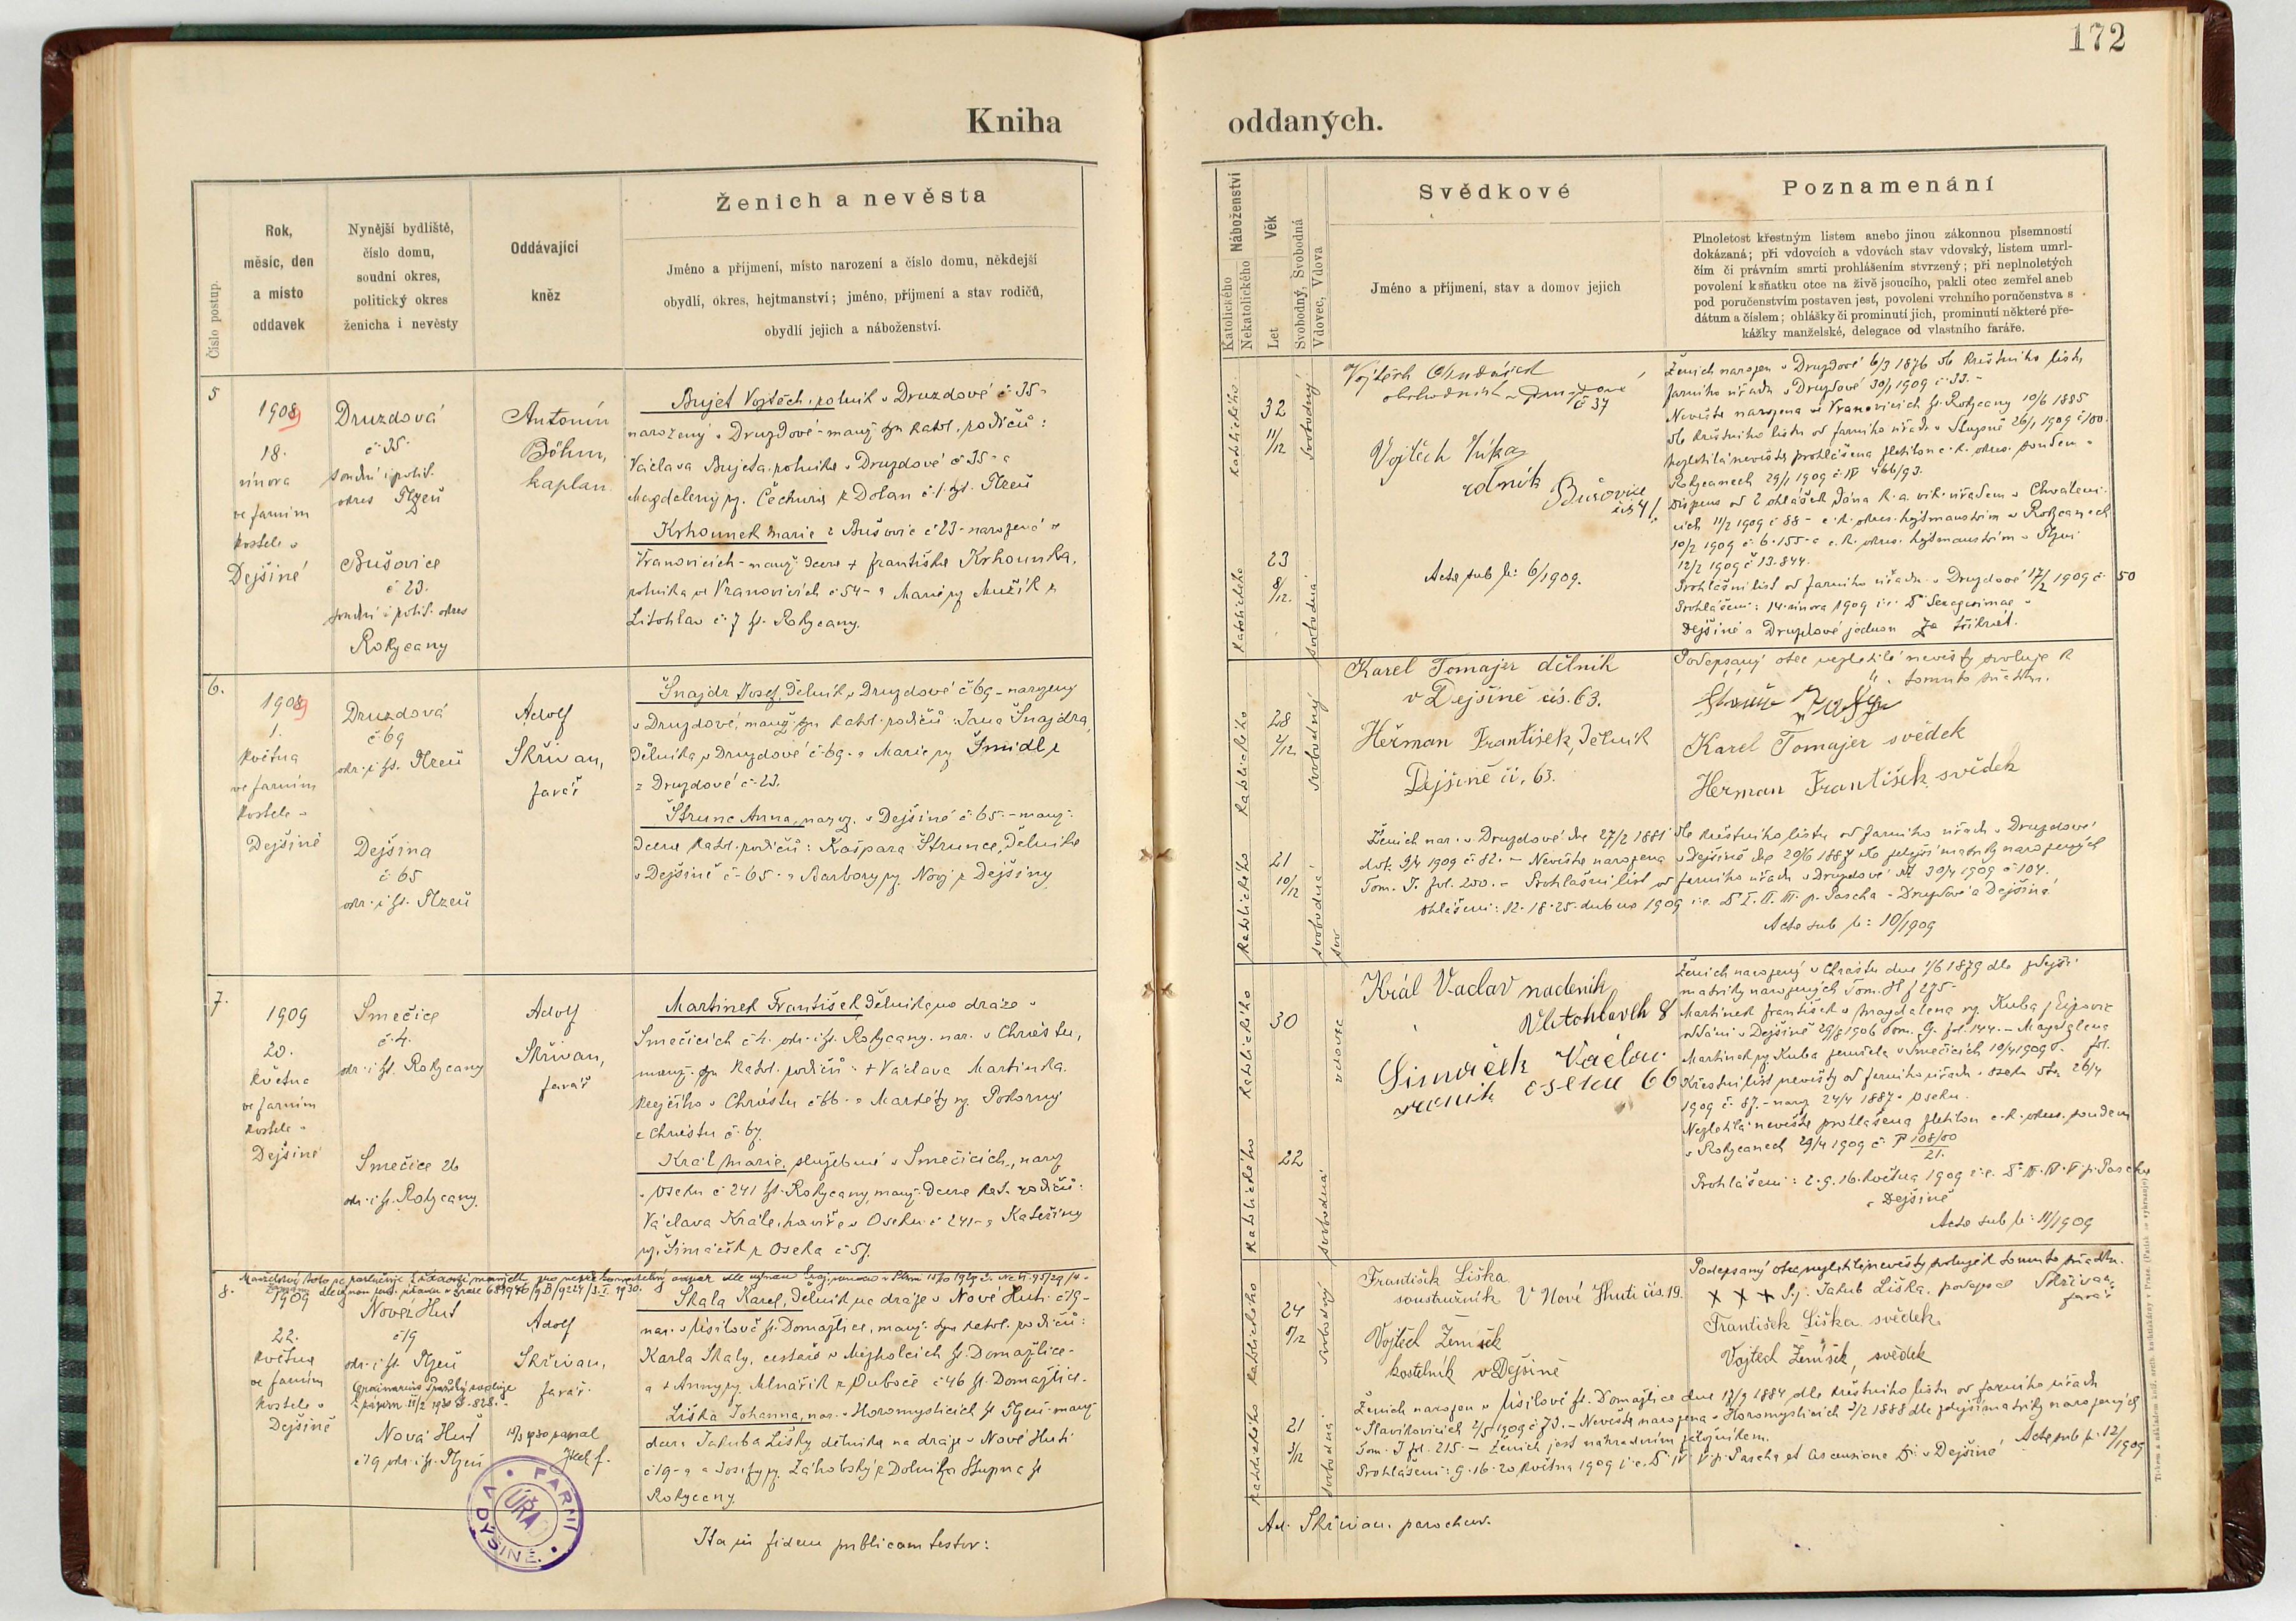 172
Kniha
oddaných.
Číslo postup.
Rok,
měsíc, den
a místo
oddavek
Nynější bydliště,
číslo domu,
soudní okres,
politický okres
ženicha i nevěsty
Oddávající
kněz
Ženich a nevěsta
Jméno a příjmení, místo narození a číslo domu, někdejší
obydlí, okres, hejtmanství; jméno, příjmení a stav rodičů,
obydlí jejich a náboženství.
Náboženství
Katolického
Nekatolického
Věk
Let
Svobodný, Svobodná
Vdovec, Vdova
Svědkové
Jméno a příjmení, stav a domov jejich
Poznamenání
Plnoletost křestným listem anebo jinou zákonnou písemností
dokázaná; při vdovcích a vdovách stav vdovský, listem umrl-
čím či právním smrti prohlášením stvrzený; při neplnoletých
povolení k sňatku otce na živě jsoucího, pakli otec zemřel aneb
pod poručenstvím postaven jest, povolení vrchního poručenstva s
dátum a číslem; ohlášky či prominutí jich, prominutí některé pře-
kážky manželské, delegace od vlastního faráře.
5
1909
18.
února
ve farním
kostele v
Dejšině
Druzdová
č 35
soudní i polit.
okres Plzeň
Bušovice
č 23.
soudní i polit. okres
Rokycany
Antonín
Böhm,
kaplan.
Bujet Vojtěch, rolník v Druzdové č 35-
narozený v Druzdové - manž. syn katol. rodičů:
Václava Bujeta, rolníka v Druzdové č 35 - a
Magdaleny roz. Čechura z Dolan č. 1. hejt. Plzeň
Krhounek Marie z Bušovic č 23 - narozená ve
Vranovicích - manž. dcera + Františka Krhounka,
rolníka ve Vranovicích č 54 - a Marie roz. Mužík z
Litohlav č. 7 hejt. Rokycany.
Katolického
32
11/12
svobodný
Katolického
23
8/12.
svobodná
Vojtěch
obchodník v Druzdové
č 37
Vojtěch
rolník
Bušovice
čís 41
Acta sub No: 6/1909.
Ženich narozen v Druzdové 6/3 1876 dle křestního listu
farního úřadu v Druzdové 30/1 1909 č 33. -
Nevěsta narozena ve Vranovicích hejt. Rokycany 10/6 1885
dle křestního listu od farního úřadu v Stupně 26/1 1909 č 100.
Nezletilá nevěsta prohlášena zletilou c. k. okres. soudem v
Rokycanech 29/1 1909 č IV 466/93.
Dispens od 2 ohlášek dána k. a. vik. úřadem v Chválení-
cích 11/2 1909 č 88 - c. k. okres. hejtmanstvím v Rokycanech
10/2 1909 č. 6.155 - a c. k. okres. hejtmanstvím v Plzni
12/2 1909 č 13.844.
Prohlášní list od farního úřadu v Druzdové 17/2 1909 č. 50
Prohlášení: 14. února 1909 i. e. D Sexagesimae v
Dejšině a Druzdové jednou za třikrát.
6.
1909
1.
května
ve farním
kostele v
Dejšině
Druzdová
č 69
okr. i hejt. Plzeň
Dejšina
č 65
okr. i hejt. Plzeň
Adolf
Skřivan,
farář
Šnajdr Josef, dělník v Druzdové č 69 - narozený
v Druzdové, manž. syn katol. rodičů: Jana Šnajdra,
dělníka v Druzdové č. 69 - a Marie roz. Šmídl
z Druzdové č. 23.
Štrunc Anna, naroz. v Dejšině č 65 - manž.
dcera katol. rodičů: Kašpara Štrunce, dělníka
v Dejšině č - 65 - a Barbory roz. Nový z Dejšiny
Katolického
28
2/12
svobodný
Katolického
21
10/12
svobodná
svo
Karel Tomajer dělník
v Dejšině čís. 63.
Heřman František, dělník
Dejšině čí. 63.
Podepsaný otec nezletilé nevěsty svoluje k
tomuto sňatku.
Karel Tomajer svědek
Heřman František svědek
Ženich nar. v Druzdové dne 27/2 1881 dle křestního listu od farního úřadu v Druzdové
ddt. 9/4 1909 č 82. - Nevěsta narozena v Dejšině dne 29/6 1887 dle zdejší matriky narozených
Tom. I. fol. 200. - Prohlášní list od farního úřadu v Druzdové ddt 30/4 1909 č 104.
Ohlášení: 12. 18. 25. dubna 1909 i. e. D I. II. III. p. Pascha - Druzdové a Dejšině
Acta sub No: 10/1909
7.
1909
20.
května
ve farním
kostele v
Dejšině
Smečice
č. 4.
okr. i hejt. Rokycany
Smečice 26
okr. i hejt. Rokycany.
Adolf
Skřivan,
farář
Martinek František dělník na dráze v
Smečicích č 4. okr. i hejt. Rokycany. nar. v Chrástu,
manž. syn katol. rodičů: + Václava Martinka.
krejčího v Chrástu č 66 - a Markéty roz. Pokorný
z Chrástu č. 67.
Král Marie, služebná v Smečicích, naroz
v Oseku č 241 hejt. Rokycany, manž. dcera kat. rodičů:
Václava Krále, havíře v Oseku č 241 - a Kateřiny
roz. Šimáček z Oseka č 57.
Katolického
30
vdovec
Katolického
22
svobodná
Král Vaclav nadeník
V Litohlavech 8
Simáček Václav
rolník Osekue 66
Ženich narozený v Chrástu dne 1/6 1879 dle zdejší
matriky narozených Tom. H f 275 -
Martinek František a Magdalena roz. Kuba z Ejpovic
oddáni v Dejšině 29/8 1906 Tom. G. fol. 144. - Magdalena
Martinek roz. Kuba zemřela v Smečicích 10/4 1909
Křestní list nevěsty od farního úřadu v Oseku dto 26/4
1909 č. 87. - naroz 24/4 1887 v Oseku.
Nezletilá nevěsta prohlášena zletilou c. k. okres. soudem
v Rokycanech 29/4 1909 č P 108/00
21.
Prohlášení: 2. 9. 16. května 1909 i. e. D III. IV. V p. Pascha
v Dejšině
Acta sub No: 11/1909
8.
1909
22.
května
ve farním
kostele v
Dejšině
Nová Huť
č 19
okr. i hejt. Plzeň
Nová Huť
č 19 okr. i hejt. Plzeň
Adolf
Skřivan,
farář.
Skala Karel, dělník na dráze v Nové Huti č 19 -
nar. v Úsilově hejt. Domažlice, manž. syn katol. rodičů:
Karla Skaly, cestáře v Mezholcích hejt. Domažlice -
a + Anny roz. Mlnařík z Luboče č 46 hejt. Domažlice.
Liška Johanna, nar. v Horomyslicích hejt Plzeň - manž
dcera Jakuba Lišky dělníka na dráze v Nové Huti
č 19 - a Josefy roz. Záhobský z Dolního Stupna hejt
Rokycany.
Katolického
24
svobodný
Katolického
21
3/12
svobodná
František Liška
soustružník V Nové Huti čís. 19.
Vojtěch Žemšek
kostelník v Dejšině
Podepsaný otec nezletilé nevěsty svoluje k tomuto sňatku.
x x x Jakub Liška. podepsal Skřivan,
farář
František Liška svědek.
Vojtěch Žemšek, svědek
Ženich narozen v Úsilově hejt. Domažlice dne 17/9 1884 dle křestního listu od farního úřadu
v Slavíkovicích 2/5 1909 č 73. - Nevěsta narozena v Horomyslicích 3/2 1888 dle zdejší matriky narozených
Tom. I fol. 215. - Ženich jest náhradním záložníkem.
Prohlášení: 9. 16. 20 května 1909 i. e. D IV. V p. Pascha et Ascensione Di v Dejšině
Acta sub No: 12/1909
FARNÍ
ÚŘAD
V DÝŠINĚ.
Ita in fidem publicam testor:
Ad. Skřivan. parochus.